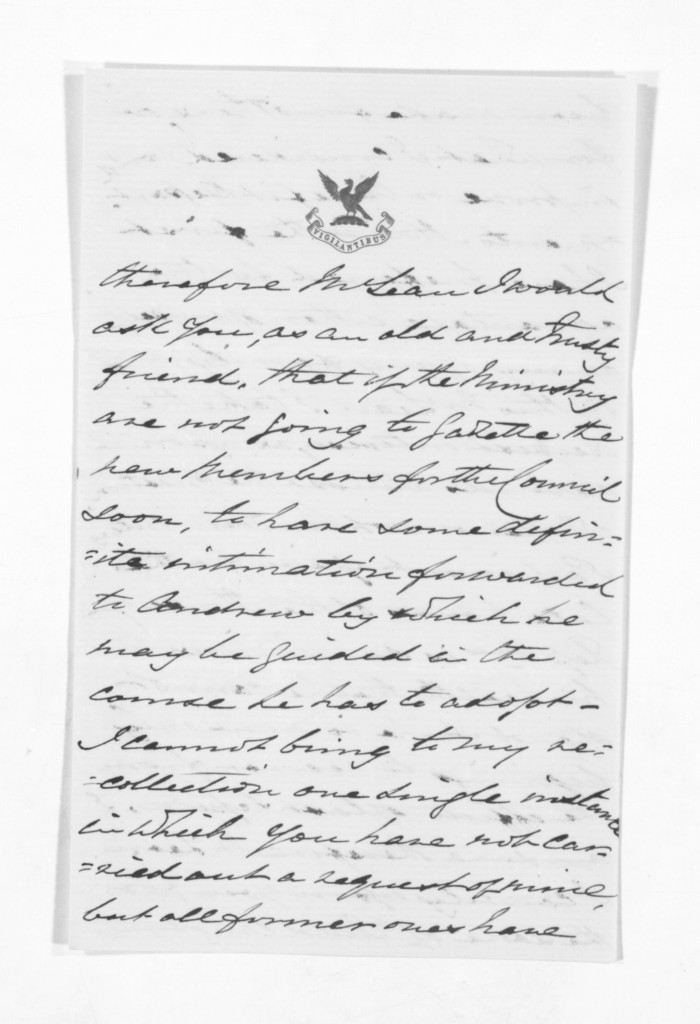 VIGILANTIBUS
therefore McLean I would
ask you, as an old and trusty
friend, that if the Ministry
are not going to Gazette the
new Members for the Council
soon, to have some defin=
=ite intimation forwarded
to Andrew by which he
may be guided in the
course he has to adopt -
I cannot bring to my re=
=collection one single instance
in which you have not car=
=ried out a request of mine,
but all former ones have